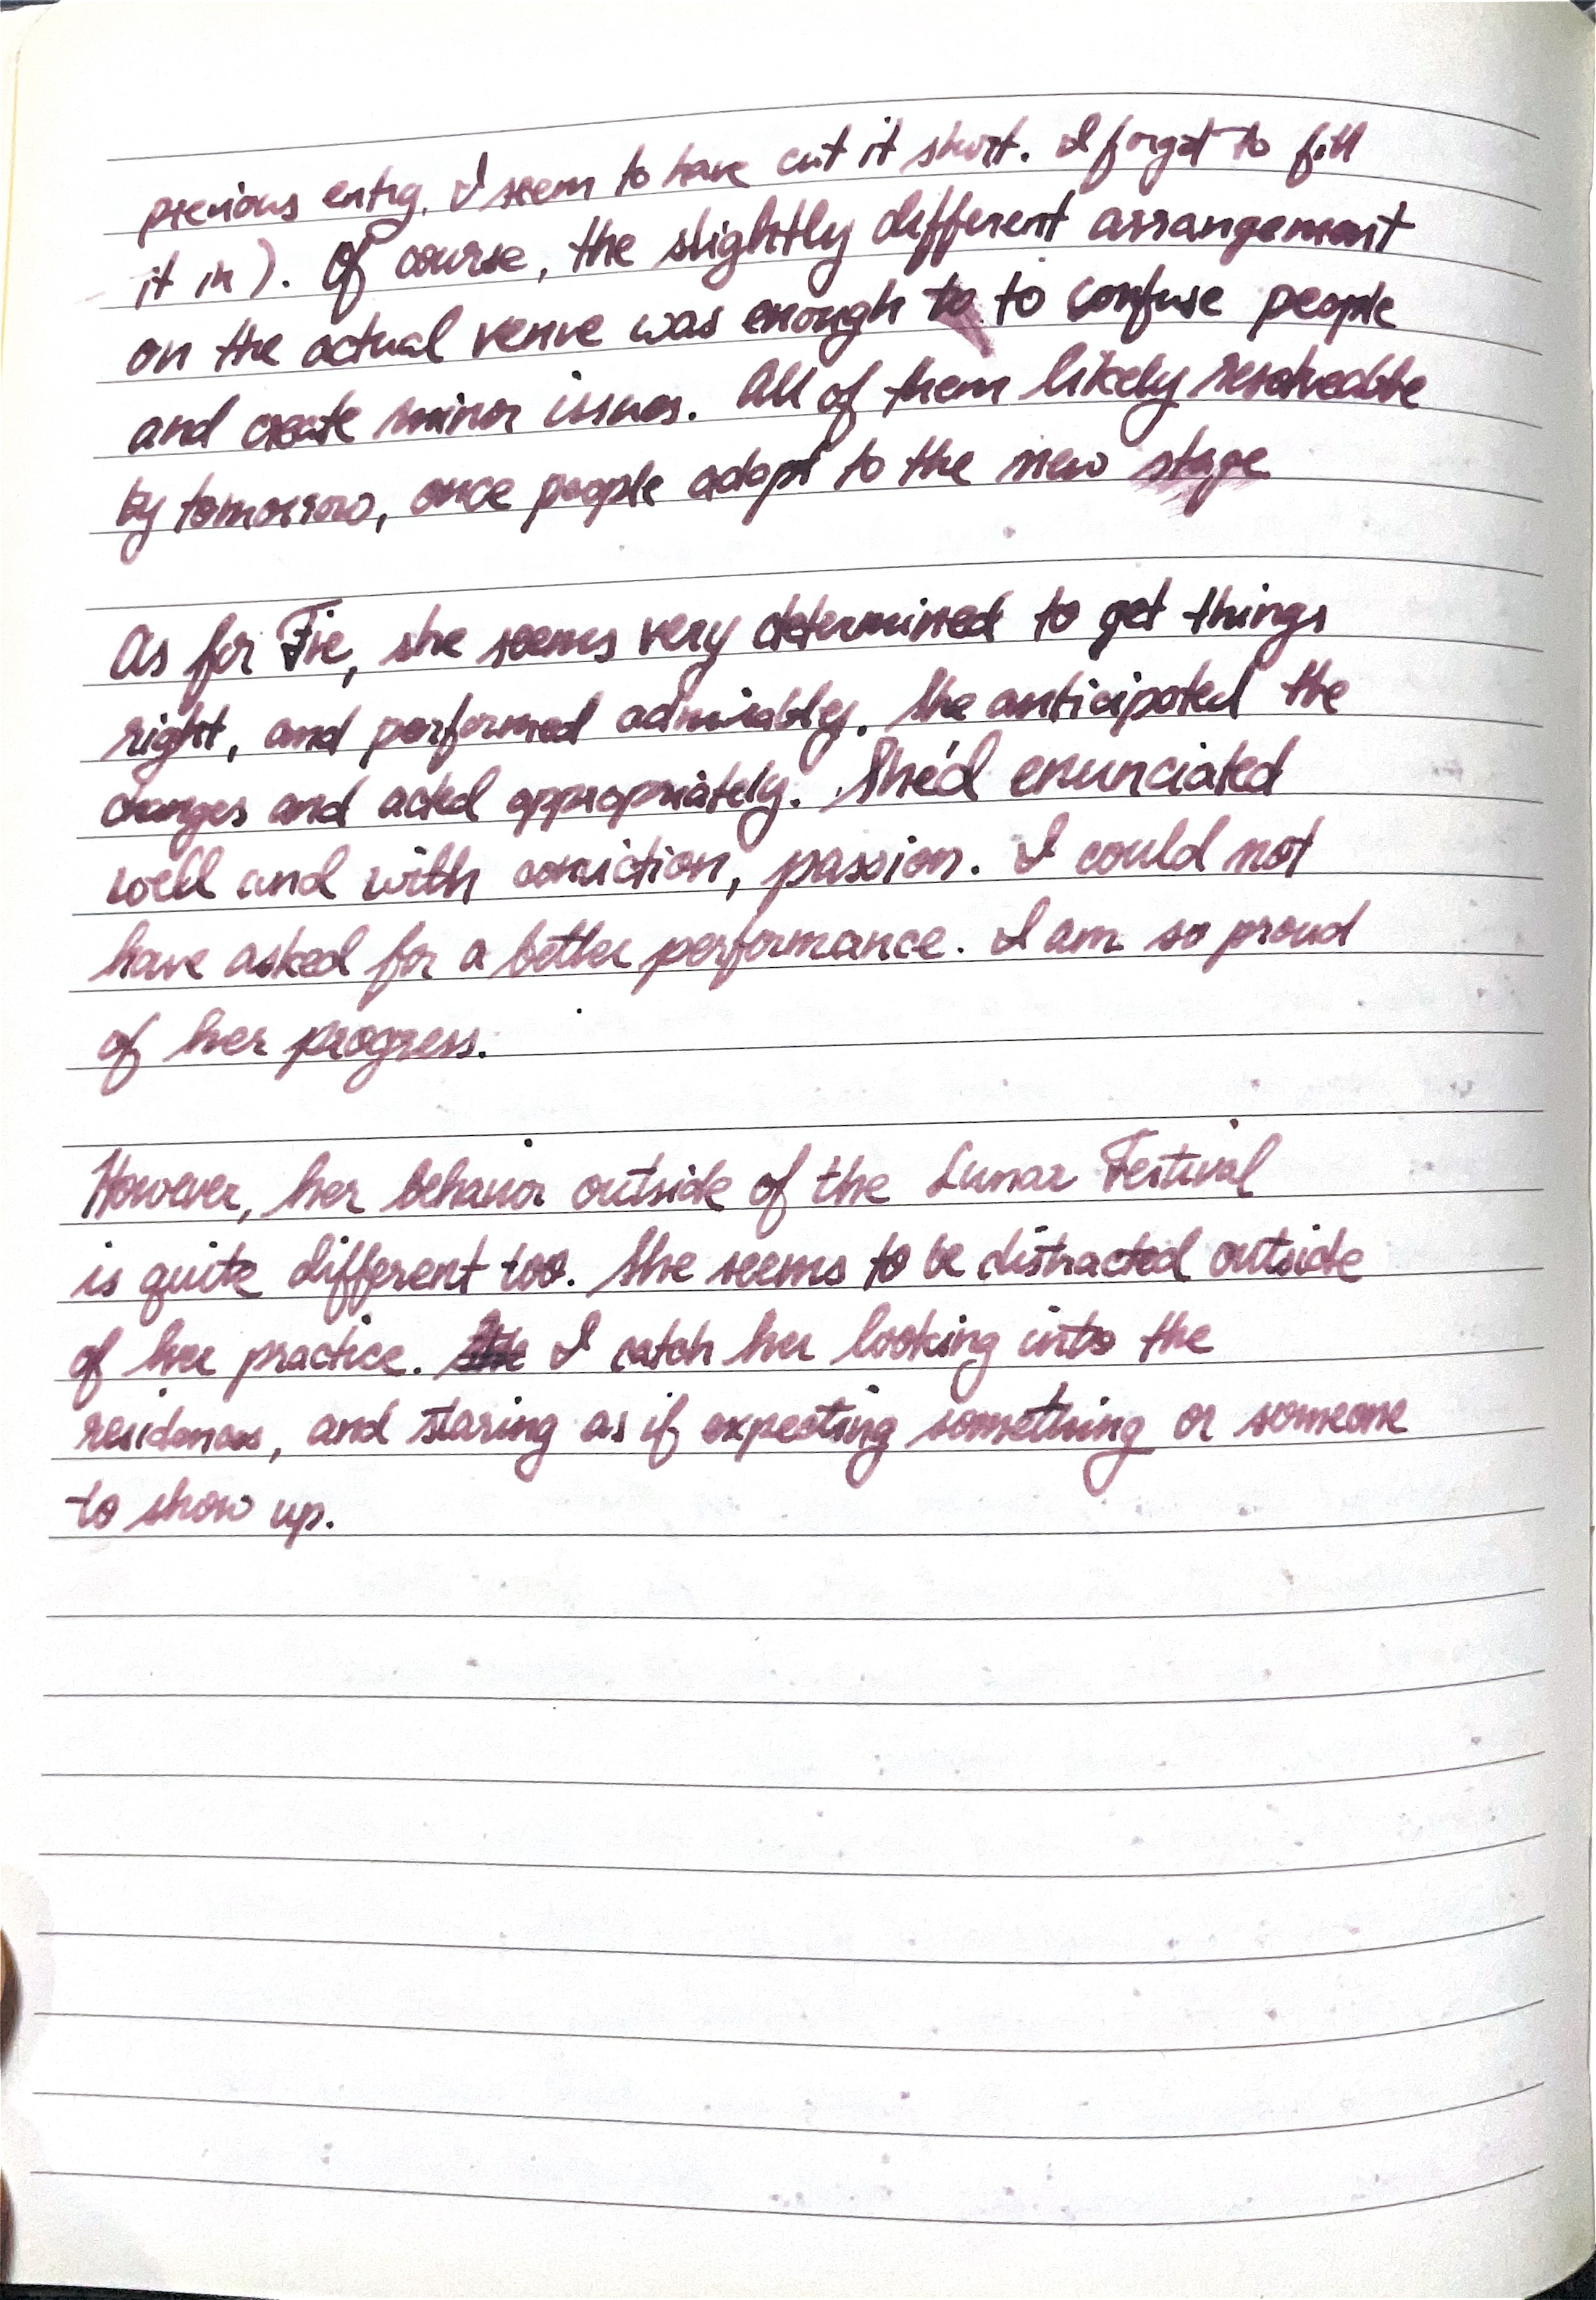 previous entry. I seem to have cut it short. I forgot to fill
it in). Of course, the slightly different arrangement
on the actual venue was enough to to confuse people
and create minor issues. All of them likely resolveable
by tomorrow, once people adapt to the new stage
As for Fie, she seems very determined to get things
right, and performed admirably. She anticipated the
changes and acted appropriately. She'd enunciated
well and with conviction, passion. I could not
have asked for a better performance. I am so proud
of her progress.
However, her behavior outside of the Lunar Festival
is quite different too. She seems to be distracted outside
of her practice. I catch her looking into the
residences, and staring as if expecting something or someone
to show up.